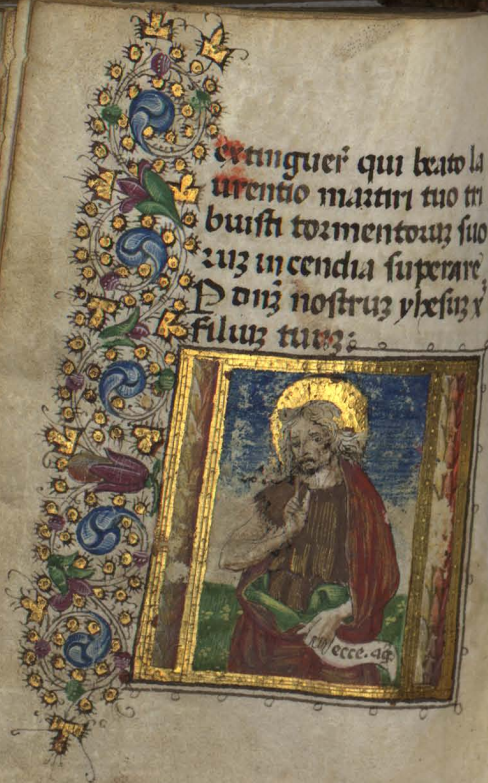 extinguer̃ qui beato la
urentio martiri tuo tri
buisti tormentoruʒ suo
ruʒ incendia superare
P dnʒ̃ nostruʒ yhesuʒ x̄
filiuʒ tuuʒ:
ecce. ag.